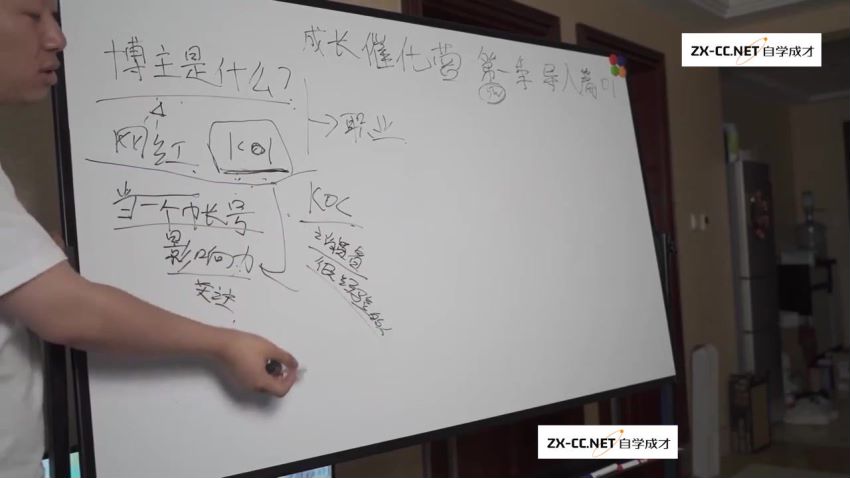 ZX-CC.NET 自学成才
成长催化营 第一章 导入篇 01
博主是什么?
网红 KOL
→职业
当一个小长号
KOC
影响力
ZX-CC.NET 自学成才